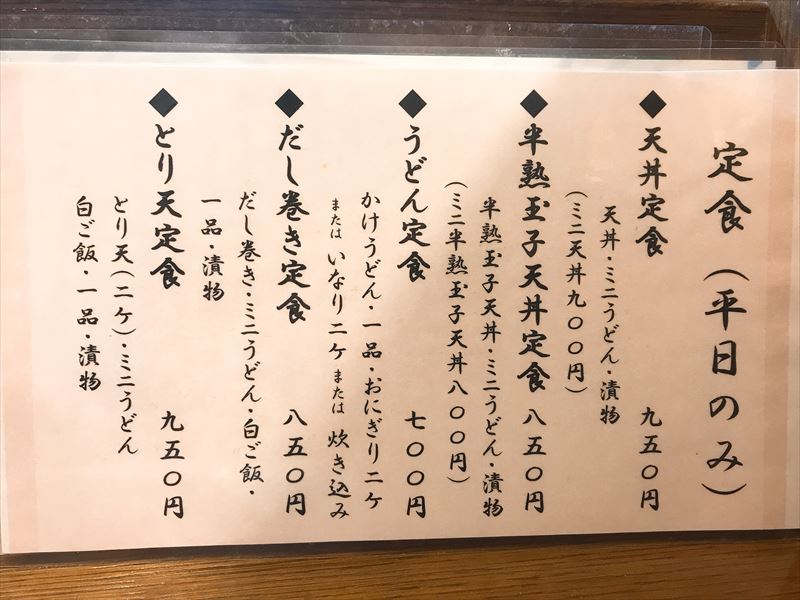 定食（平日のみ）
◆天丼定食 九五〇円
天丼・ミニうどん・漬物
（ミニ天丼九〇〇円）
◆半熟玉子天丼定食 八五〇円
半熟玉子天丼・ミニうどん・漬物
（ミニ半熟玉子天丼八〇〇円）
◆うどん定食 七〇〇円
かけうどん・一品・おにぎり二ケ
または いなり二ケ または 炊き込み
◆だし巻き定食 八五〇円
だし巻き・ミニうどん・白ご飯・
一品・漬物
◆とり天定食 九五〇円
とり天（二ケ）・ミニうどん
白ご飯・一品・漬物